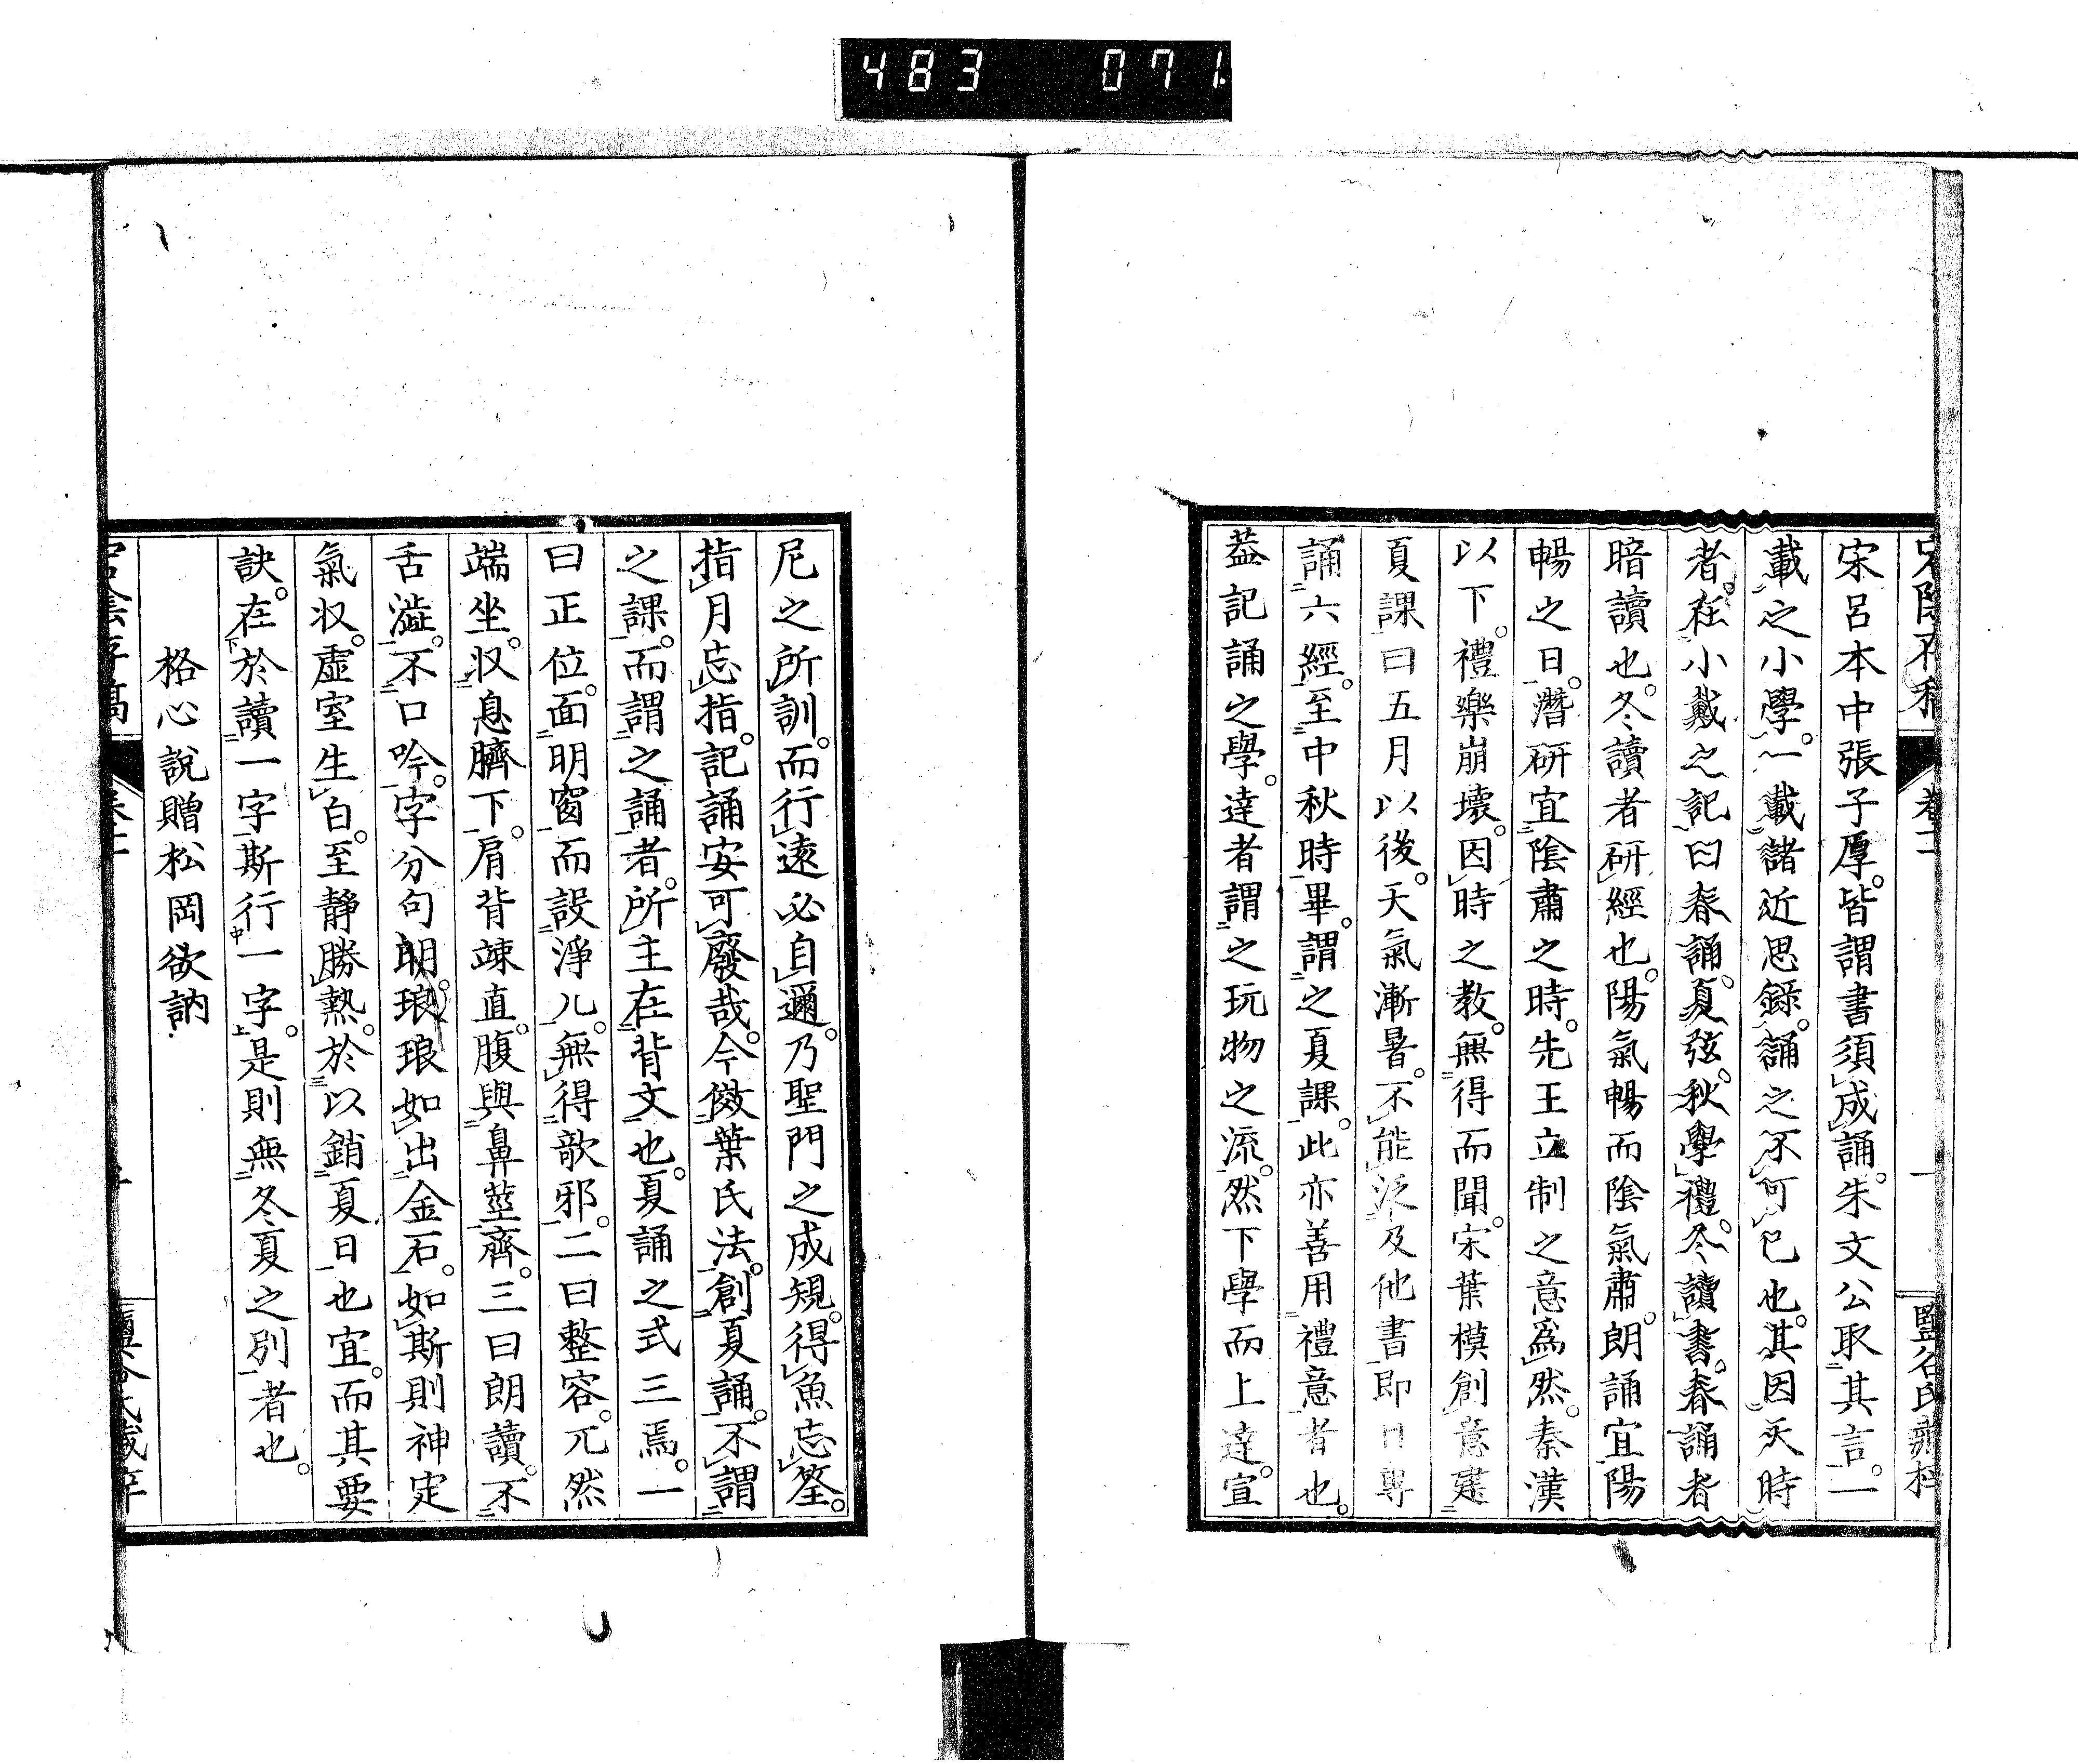 483 071
宋呂本中張子厚。皆謂書須成誦。朱文公取其言。一
載之小學。一載諸近思錄。誦之不可已也。其因天時
者。在小戴之記。曰春誦。夏弦。秋學禮。冬讀書。春誦者
暗讀也。冬讀者研經也。陽氣暢而陰氣肅。朗誦宜陽
暢之日。潛研宜陰肅之時。先王立制之意爲然。秦漢
以下。禮樂崩壞。因時之教。無得而聞。宋葉模創意建
夏課。曰五月以後。天氣漸暑。不能泛及他書。即日專
誦六經。至中秋時畢。謂之夏課。此亦善用禮意者也。
葢記誦之學。達者謂之玩物之流。然下學而上達。宣
尼之所訓。而行遠必自邇。乃聖門之成規。得魚忘筌。
指月忘指。記誦安可廢哉。今倣葉氏法。創夏誦。不謂
之課。而謂之誦者。所主在背文也。夏誦之式三焉。一
曰正位。面明窗而設淨几。無得欹邪。二曰整容。兀然
端坐。収息臍下。肩背竦直。腹與鼻莖齊。三曰朗讀。不
舌澁。不口吟。字分句朗。琅琅如出金石。如斯則神定
氣収。虛室生白。至靜勝熱。於以銷夏日也宜。而其要
訣。在於讀一字斯行一字。是則無冬夏之別者也。
格心說贈松岡欲訥